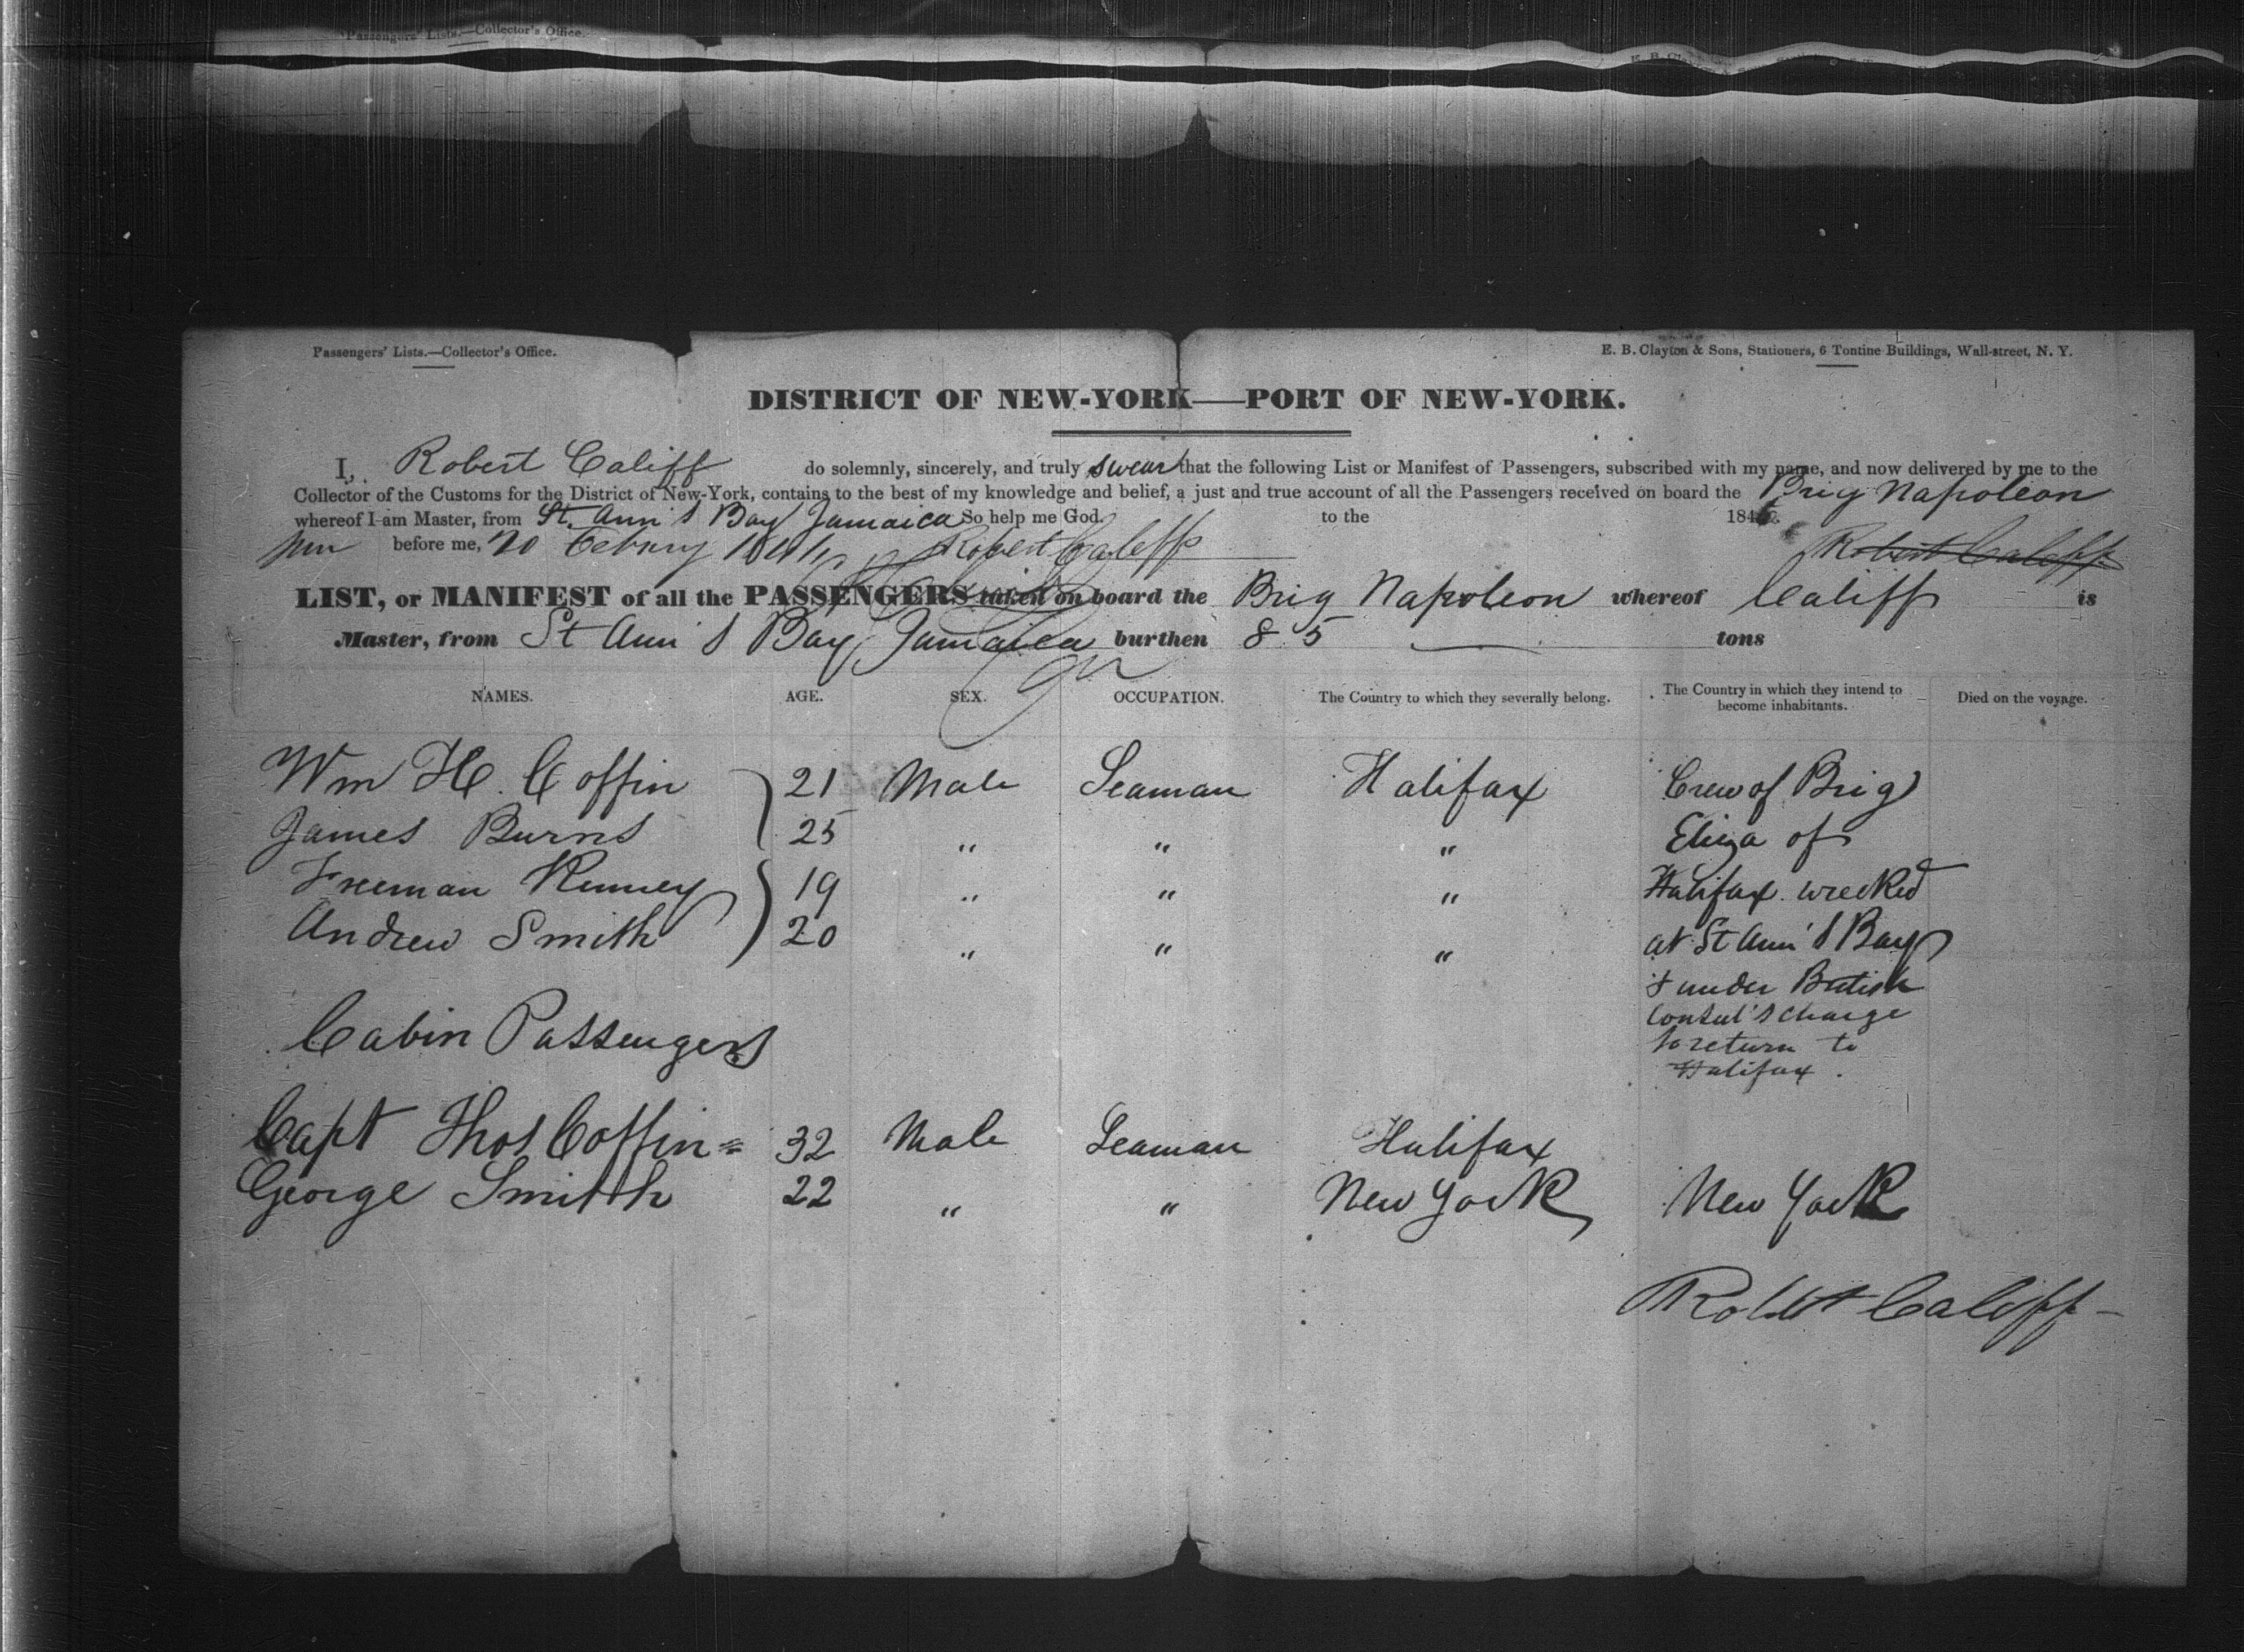 Passengers' Lists.—Collector's Office.
Passengers' Lists.—Collector's Office. E. B. Clayton & Sons, Stationers, 6 Tontine Buildings, Wall-street, N. Y.
DISTRICT OF NEW-YORK—PORT OF NEW-YORK.
I, Robert Califf do solemnly, sincerely, and truly swear that the following List or Manifest of Passengers, subscribed with my name, and now delivered by me to the
Collector of the Customs for the District of New-York, contains to the best of my knowledge and belief, a just and true account of all the Passengers received on board the Brig Napoleon
whereof I am Master, from St. Ann's Bay Jamaica So help me God. to the 184
before me, 20 Robert Caleff Robert Caleff
LIST, or MANIFEST of all the PASSENGERS taken on board the Brig Napoleon whereof Califf is
Master, from St Ann's Bay Jamaica burthen 85 tons
NAMES. AGE. SEX. OCCUPATION. The Country to which they severally belong. The Country in which they intend to become inhabitants. Died on the voyage.
Wm H. Coffin 21 Male Seaman Halifax Crew of Brig
James Burns 25 " " " Eliza of
Freeman Kenney 19 " " " Halifax wrecked
Andrew Smith 20 " " " at St Ann's Bay
& under British
Consul's charge
Cabin Passengers to return to
Halifax.
Capt Thos Coffin = 32 Male Seaman Halifax
George Smith 22 " " New York New York
Robert Caleff